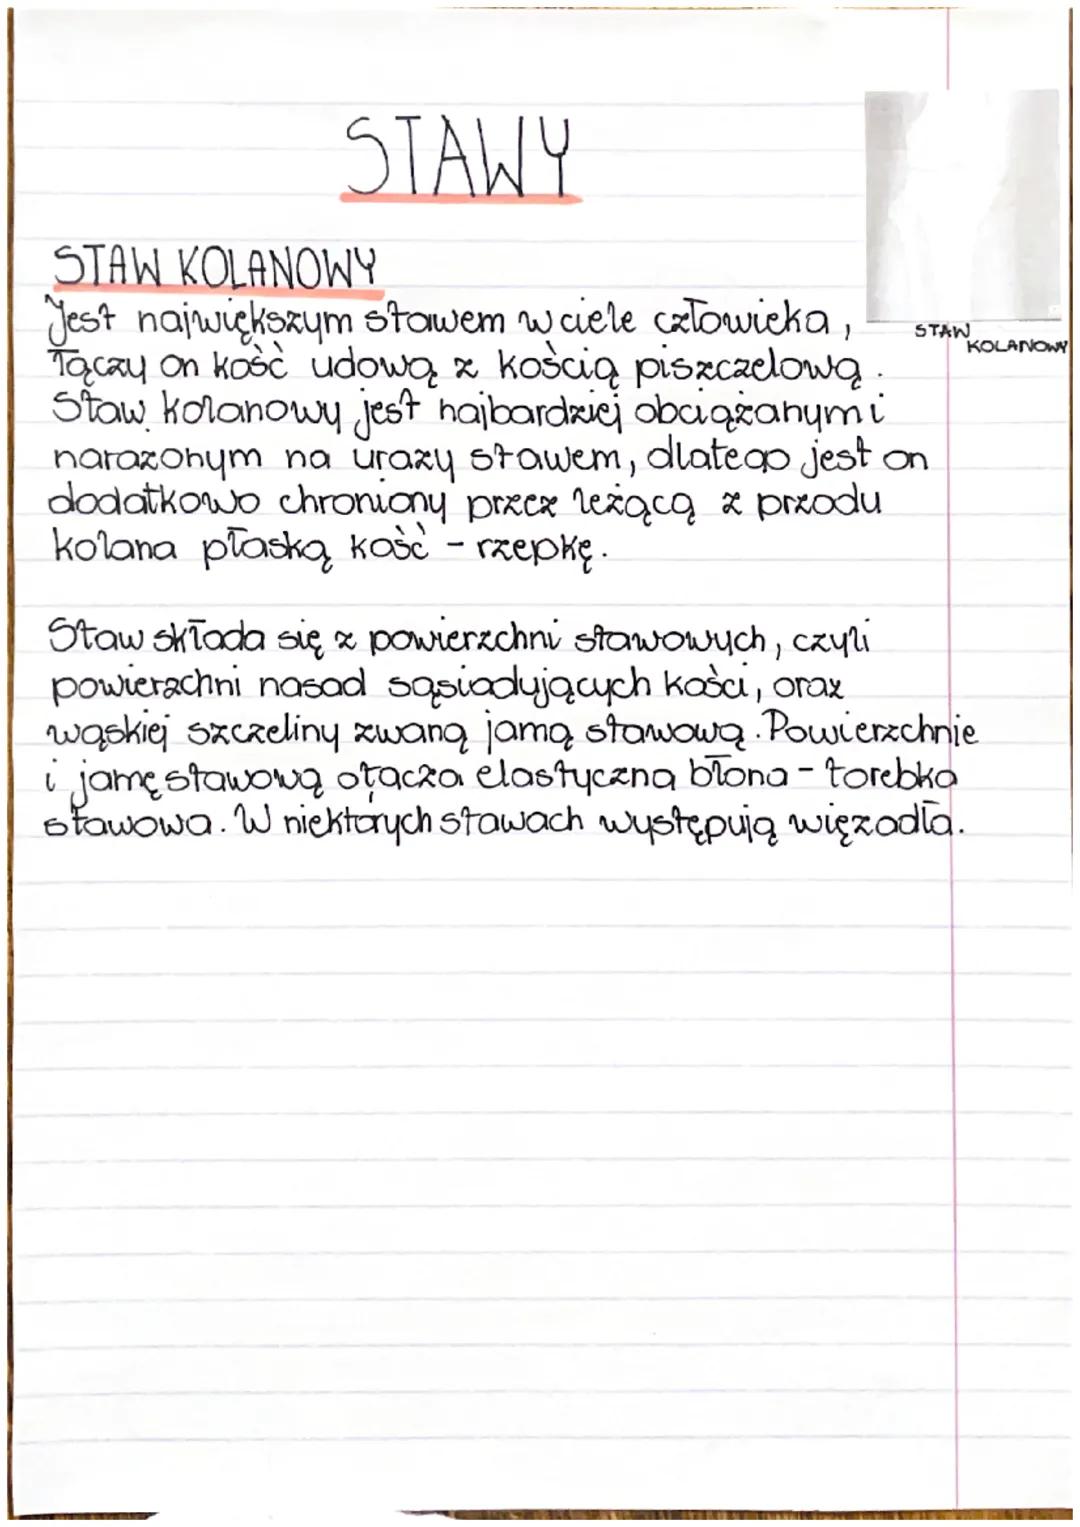 STAWY
STAW KOLANOWY
Jest największym stawem w ciele człowieka,
łączy on kość udową z kością piszczelową.
Staw kolanowy jest najbardziej obciążanym i
narażonym na urazy stawem, dlatego jest on
dodatkowo chroniony przez leżącą z przodu
kolana płaską kość - rzepkę.
STAW
KOLANOWY
Staw składa się z powierzchni stawowych, czyli
powierzchni nasad sąsiadujących kości, oraz
wąskiej szczeliny zwaną jamą stawową. Powierzchnie
i jamę stawową otacza elastyczna błona - torebka
stawowa. W niektórych stawach występują więzadła.